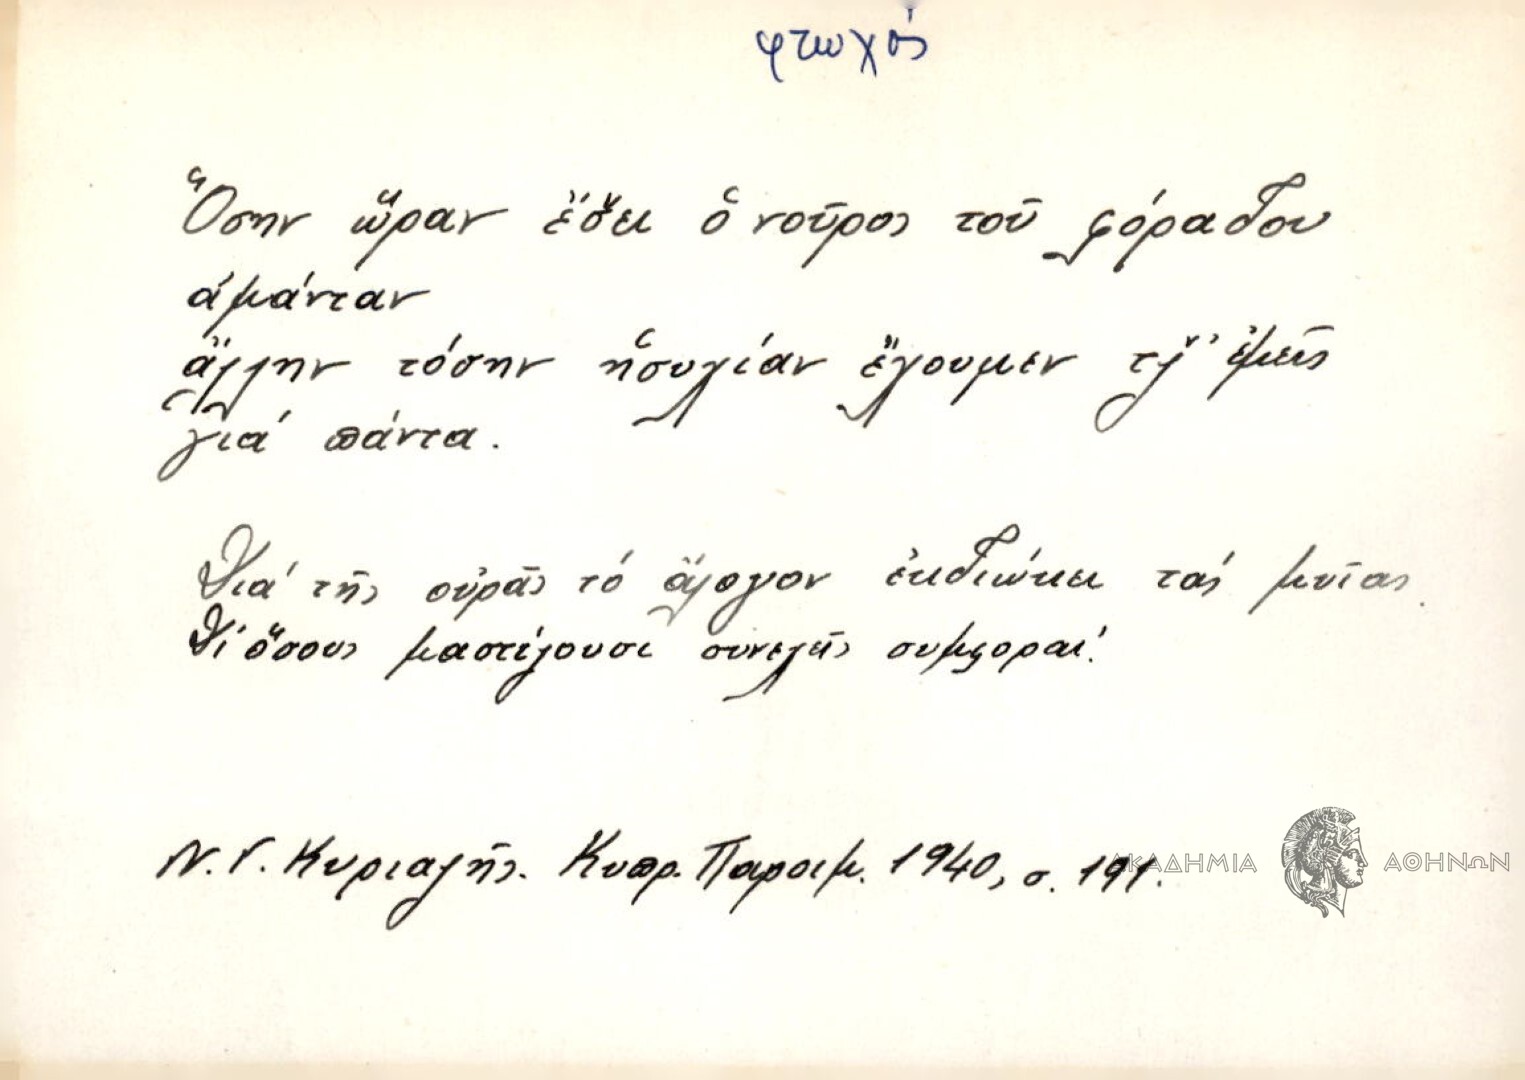 φτωχός
Ὅσην ὥραν ἔσ̌ει ὁ νοῦρος τοῦ φόραδου
ἀμάνταν
ἄλλην τόσην ἡσυχίαν ἔχουμεν τζ̌' ἐμεῖς
γιά πάντα.
Διά τῆς οὐρᾶς τό ἄλογον ἐκδιώκει τάς μυῖας.
Δι' ὅσους μαστίζουσι συνεχεῖς συμφοραί.
Ν. Γ. Κυριαζῆς. Κυπρ. Παροιμ. 1940, σ. 191.
ΑΚΑΔΗΜΙΑ ΑΘΗΝΩΝ